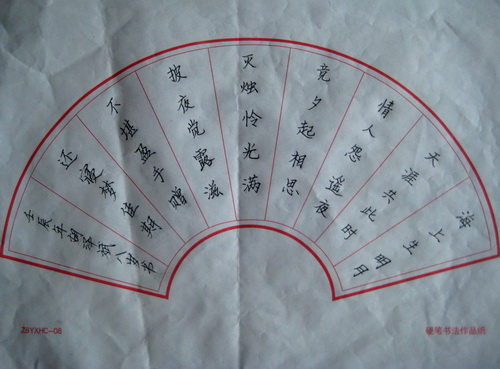 海上生明月
天涯共此时
情人思遥夜
竟夕起相思
灭烛怜光满
披夜觉露滋
不堪盈手赠
还寝梦佳期
壬辰年 八岁书
ZBYXHC-06
硬笔书法作品纸